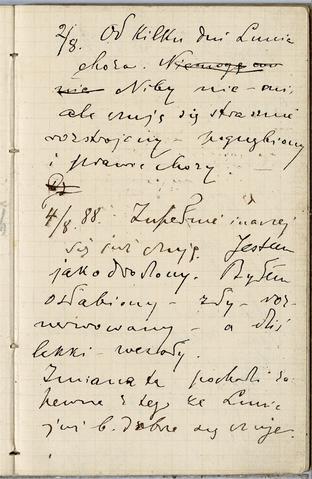 2/8. Od kilku dni Lunia
chora. Niemogę
nie Niby nie – 
ale czuję się strasznie
rozstrojony – pognębiony
i prawie chory.
4/8. 88. Zupełnie inaczej
się już czuję. Jestem
jako odrodzony. Byłem
osłabiony – zły – roz-
nerwowany – a dziś
lekki – wesoły.
Zmiana ta pochodzi za-
pewne z tego że Lunia
już b. dobrze się czuje.